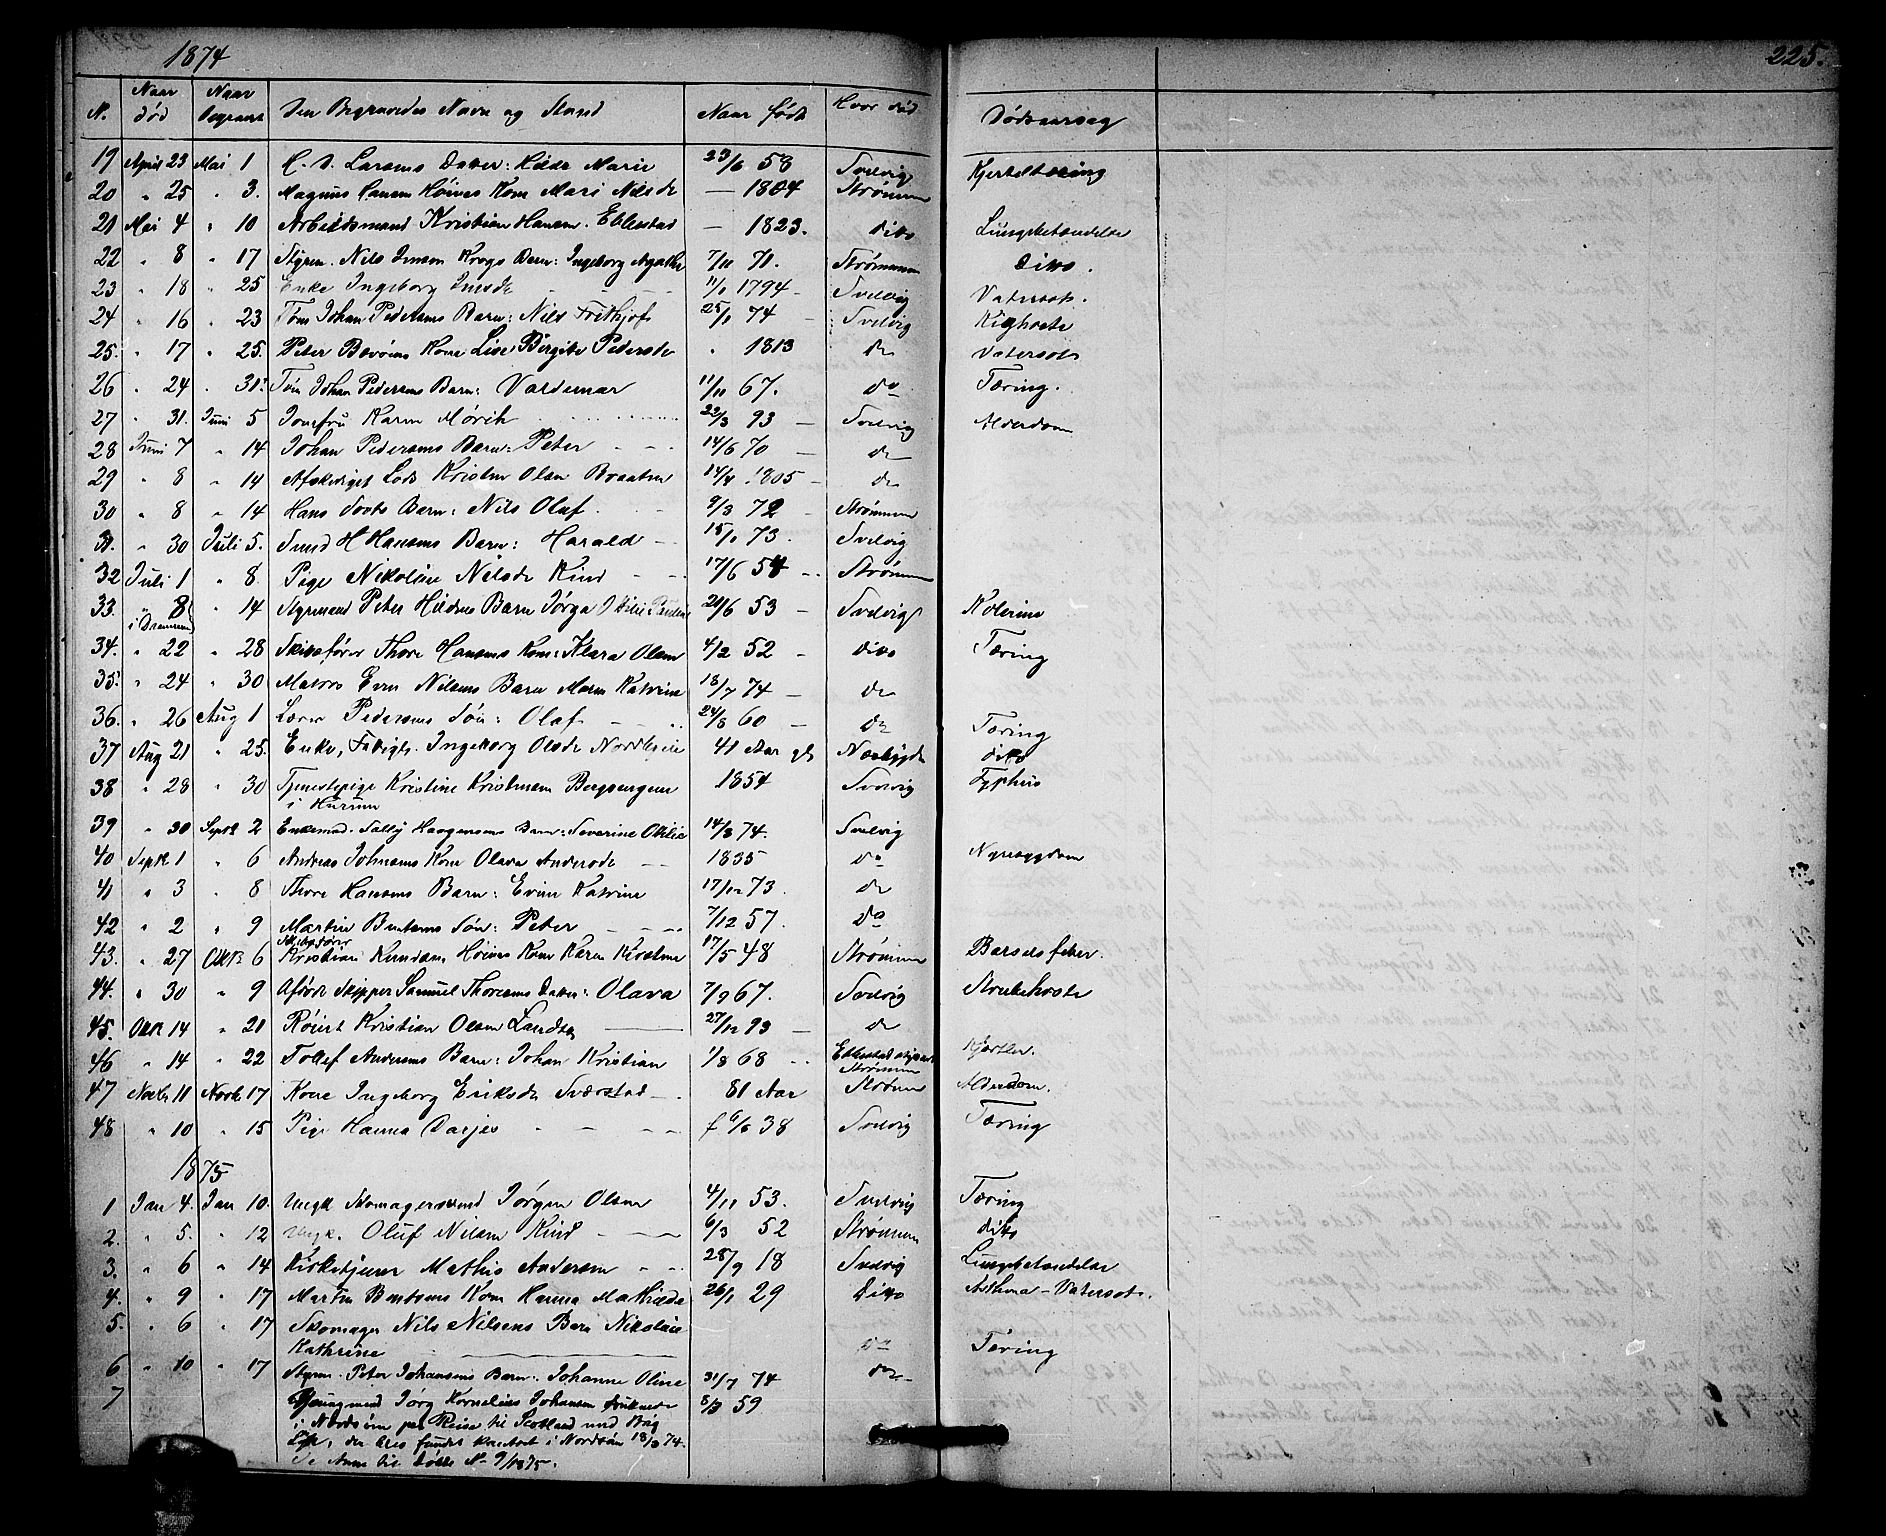 1874
225.
N. Naar død Naar begravet Den Begravedes Navn og Stand Naar født Hvor død Dødsaarsag
19 April 23 Mai 1 H. Larsens Datter: Hilda Marie 23/6 58 Svelvig Kjerteltæring
20 " 25 " 3. Magnus Hansen Høines Kone Mari Nilsdr — 1804 Strømmen
21 Mai 4 " 10 Arbeidsmand Kristian Hansen Ebbestad — 1823. dito Lungebetændelse
22 " 8 " 17 Styrm. Nils Jenson Krogs Barn: Ingeborg Agathe 7/11 71. Strømmen Dito.
23 " 18 " 25 Enke Ingeborg Jensdr 11/1 1794 - Svelvig Vatersot.
24 " 16 " 23 Tøm Johan Pedersens Barn: Nils Frithjof 25/1 74 - Svelvig Kighoste
25. " 17 " 25. Peter Bovøens Kone Lise Birgite Pedersdr " 1813 do Vatersot
26 " 24 " 31. Tøm Johan Pedersens Barn: Valdemar 11/11 67. do Tæring.
27 " 31. Juni 5 Jomfru Karen Mørch 22/3 93 — Svelvig Alderdom
28 Juni 7 " 14 Johan Pedersens Barn: Peter 14/6 70 — do
29 " 8 " 14 Afskediget Lods Kristen Olsen Braaten 14/8 1805 - do
30 " 8 " 14 Hans Barn: Nils Olaf 9/3 72 - Strømmen
31. " 30 Juli 5. H Hansens Barn: Harald 15/1 73. Svelvig
32 Juli 1 " 8. Pige Nikoline Nilsdr Kind 17/6 54 Strømmen
33. " 8 " 14 Styrmand Peter Barn Jørga Otilie 20/6 53 — Svelvig Kolerine
i Drammen
34. " 22 " 28 Skibsfører Thore Hansens Kone: Klara Olsen 4/2 52 - dito Tæring
35. " 24 " 30 Matros Even Nilsens Barn Maren Katrine 18/7 74 — do
36. " 26 Aug 1 Lærer Pedersens Søn: Olaf 24/8 60 — do Tæring
37 Aug 21 " 25. Enke, Ingeborg Olsdr 41 Aar gl Nesbygden dito
38 " 28 " 30 Tjenestepige Kristine Kristensen Bergsengen 1854 Svelvig Typhus
i Hurum
39 " 30 Septr 2 Enkemd. Haagensens Barn: Severine Otilie 14/8 74. Svelvig
40 Septr 1 " 6 Andreas Johnsens Kone Olava Andersdr 1835 do Nyresygdom
41 " 3 " 8 Thore Hansens Barn: Katrine 17/12 73. do
42 " 2 " 9 Martin Bentsens Søn: Peter 7/12 57. do
Skibsfører
43. " 27 Oktb 6 Kristian Høines Kone Karen 17/5 48 Strømmen Barselsfeber.
44. " 30 " 9 Afdøde Skipper Samuel Thoresens Datter: Olava 7/9 67. Svelvig Strubehoste
45. Oktb 14 " 21 Kristian Olsen 27/12 93 — do
46 " 14 " 22 Tollef Andersens Barn: Johan Kristian 1/8 68 Ebbestad Kjertler.
Strømmen
47 Novbr 11 Novbr 17 Kone Ingeborg Eriksdr Sværstad 81 Aar Strømm Alderdom.
48 " 10 " 15 Pige Hanna f 6/6 38 Svelvig Tæring
1875
1 Jan 4. Jan 10. Ungk Skomagersvend Jørgen Olsen 4/11 53. Svelvig Tæring
2. " 5. " 12 Ungk. Oluf Nilsen Kind 6/3 52 Strømmen dito
3. " 6 " 14 Kirketjener Mathis Andersen 28/9 18 Svelvig Lungebetændelse
4. " 9 " 17 Martin Bentsens Kone Hanna Mathilde 26/1 29 Dito Asthma - Vatersot.
5. " 6 " 17 Skomager Nils Nilsens Barn Nikoline
Kathrine do Tæring
6 " 10 " 17 Styrm. Peter Johansens Barn: Johanne Oline 31/7 74 do
7 Jungmand Jørg Kornelius Johansen druknede 8/3 59
i Nordsøen paa Reise til Scotland med Brig
der blev fundet i Nordsøen 18/3 74.
Se Anm til Døde No 9/1875.